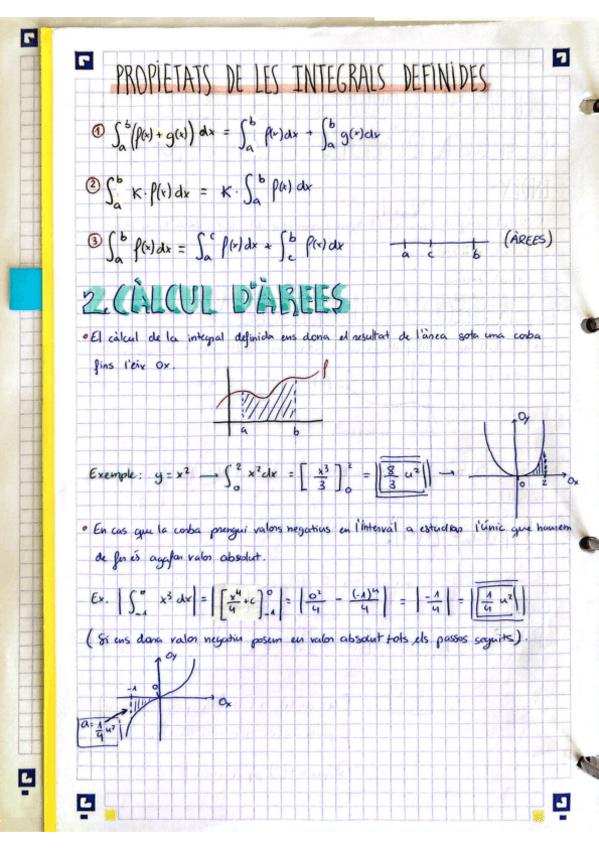 PROPIETATS DE LES INTEGRALS DEFINIDES
① ∫ₐᵇ (f(x) + g(x)) dx = ∫ₐᵇ f(x) dx + ∫ₐᵇ g(x) dx
② ∫ₐᵇ K · f(x) dx = K · ∫ₐᵇ f(x) dx
③ ∫ₐᵇ f(x) dx = ∫ₐᶜ f(x) dx + ∫_c^b f(x) dx a c b (ÀREES)
2. CÀLCUL D'ÀREES
• El càlcul de la integral definida ens dona el resultat de l'àrea sota una corba
fins l'eix Ox.
f
a b
Oy
Exemple: y = x² → ∫₀² x² dx = [x³/3]₀² = |8/3 u²| →
0 2 Ox
• En cas que la corba prengui valors negatius en l'interval a estudiar l'únic que haurem
de fer és agafar valor absolut.
Ex. |∫₋₁⁰ x³ dx| = |[x⁴/4 + c]₋₁⁰| = |0²/4 - (-1)⁴/4| = |-1/4| = |1/4 u²|
(Si ens dona valor negatiu posem en valor absolut tots els passos seguits).
Oy
-1 0 Ox
a = 1/4 u²